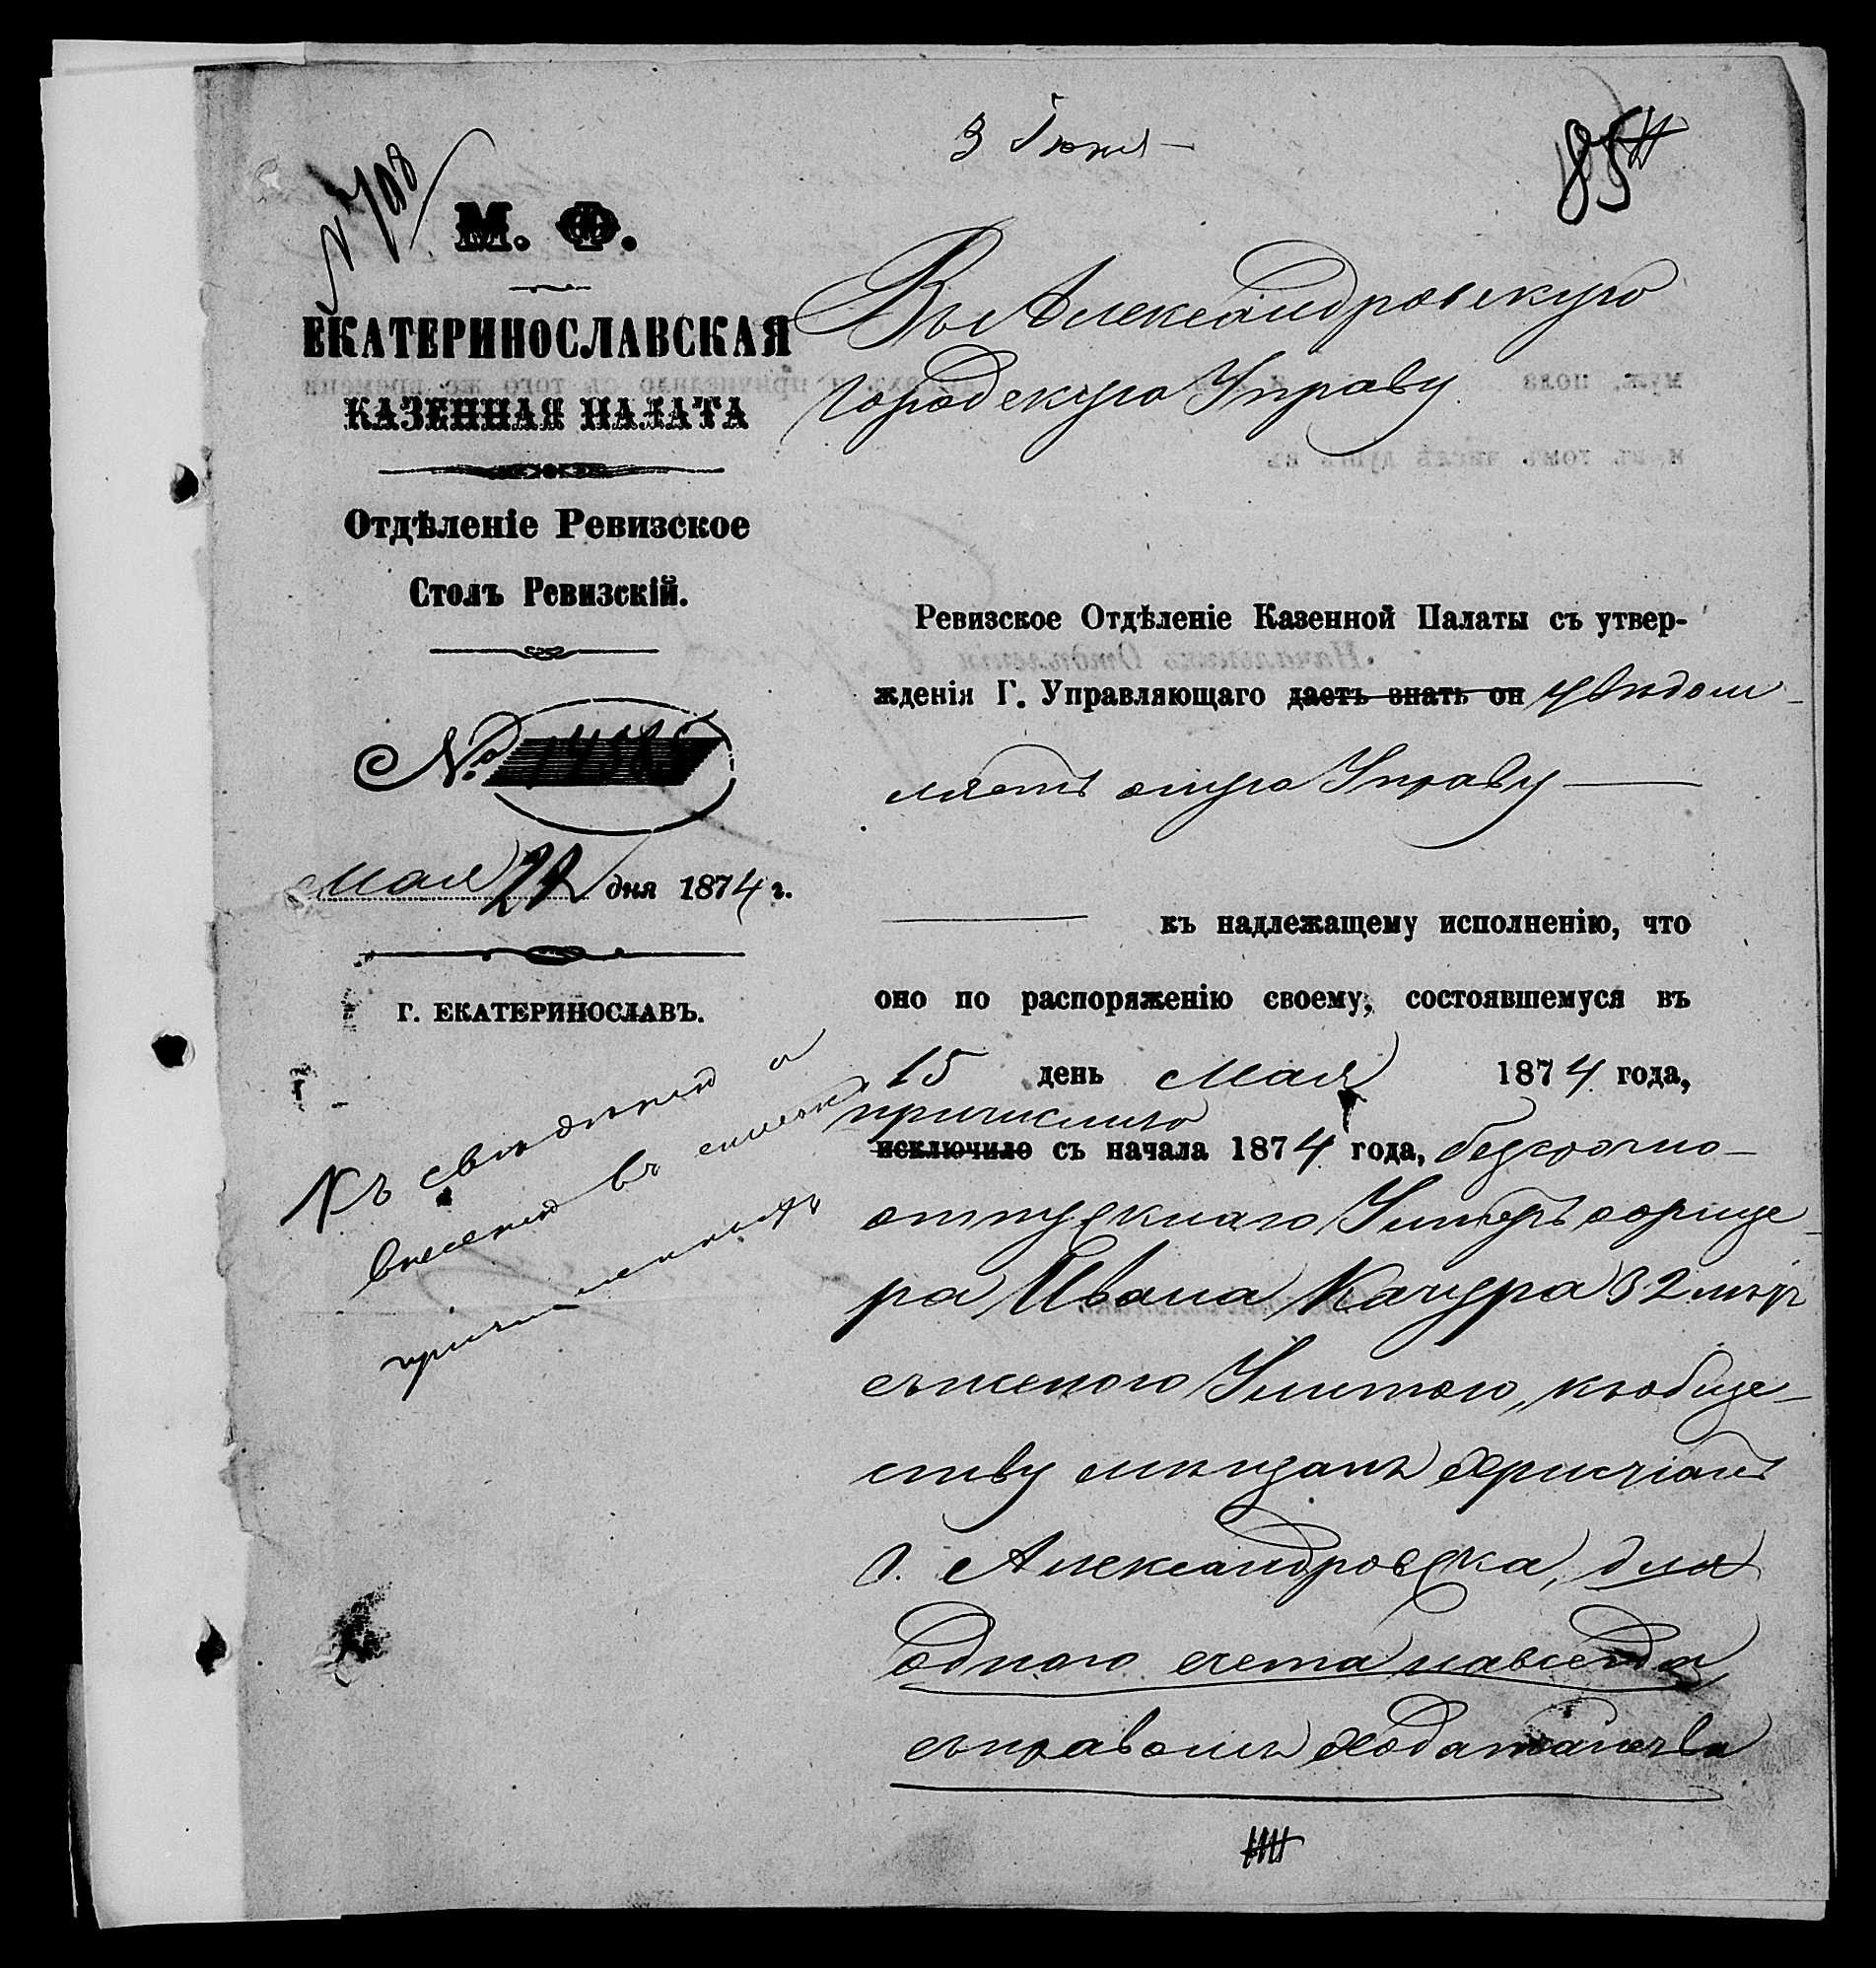 3 Іюня
85
№ 798
М. Ф.
ЕКАТЕРИНОСЛАВСКАЯ
КАЗЕННАЯ ПАЛАТА
Отдѣленіе Ревизское
Столъ Ревизскій.
№
Мая 22 дня 1874 г.
Г. ЕКАТЕРИНОСЛАВЪ.
Къ свѣдѣнію и
внесенію въ списокъ
причисленныхъ
Въ Александровскую
Городскую Управу
Ревизское Отдѣленіе Казенной Палаты съ утвер-
жденія Г. Управляющаго даетъ знать он увѣдом-
ляетъ оную Управу
къ надлежащему исполненію, что
оно по распоряженію своему, состоявшемуся въ
15 день Мая 1874 года,
причислило
исключило съ начала 1874 года, безсрочно-
отпускнаго Унтеръ офице-
ра Ивана Качура 32 лѣтъ
съ женою Улитою, къ обще-
ству мѣщанъ христіанъ
г. Александровска, для
одного счета навсегда
съ правомъ ходатайства